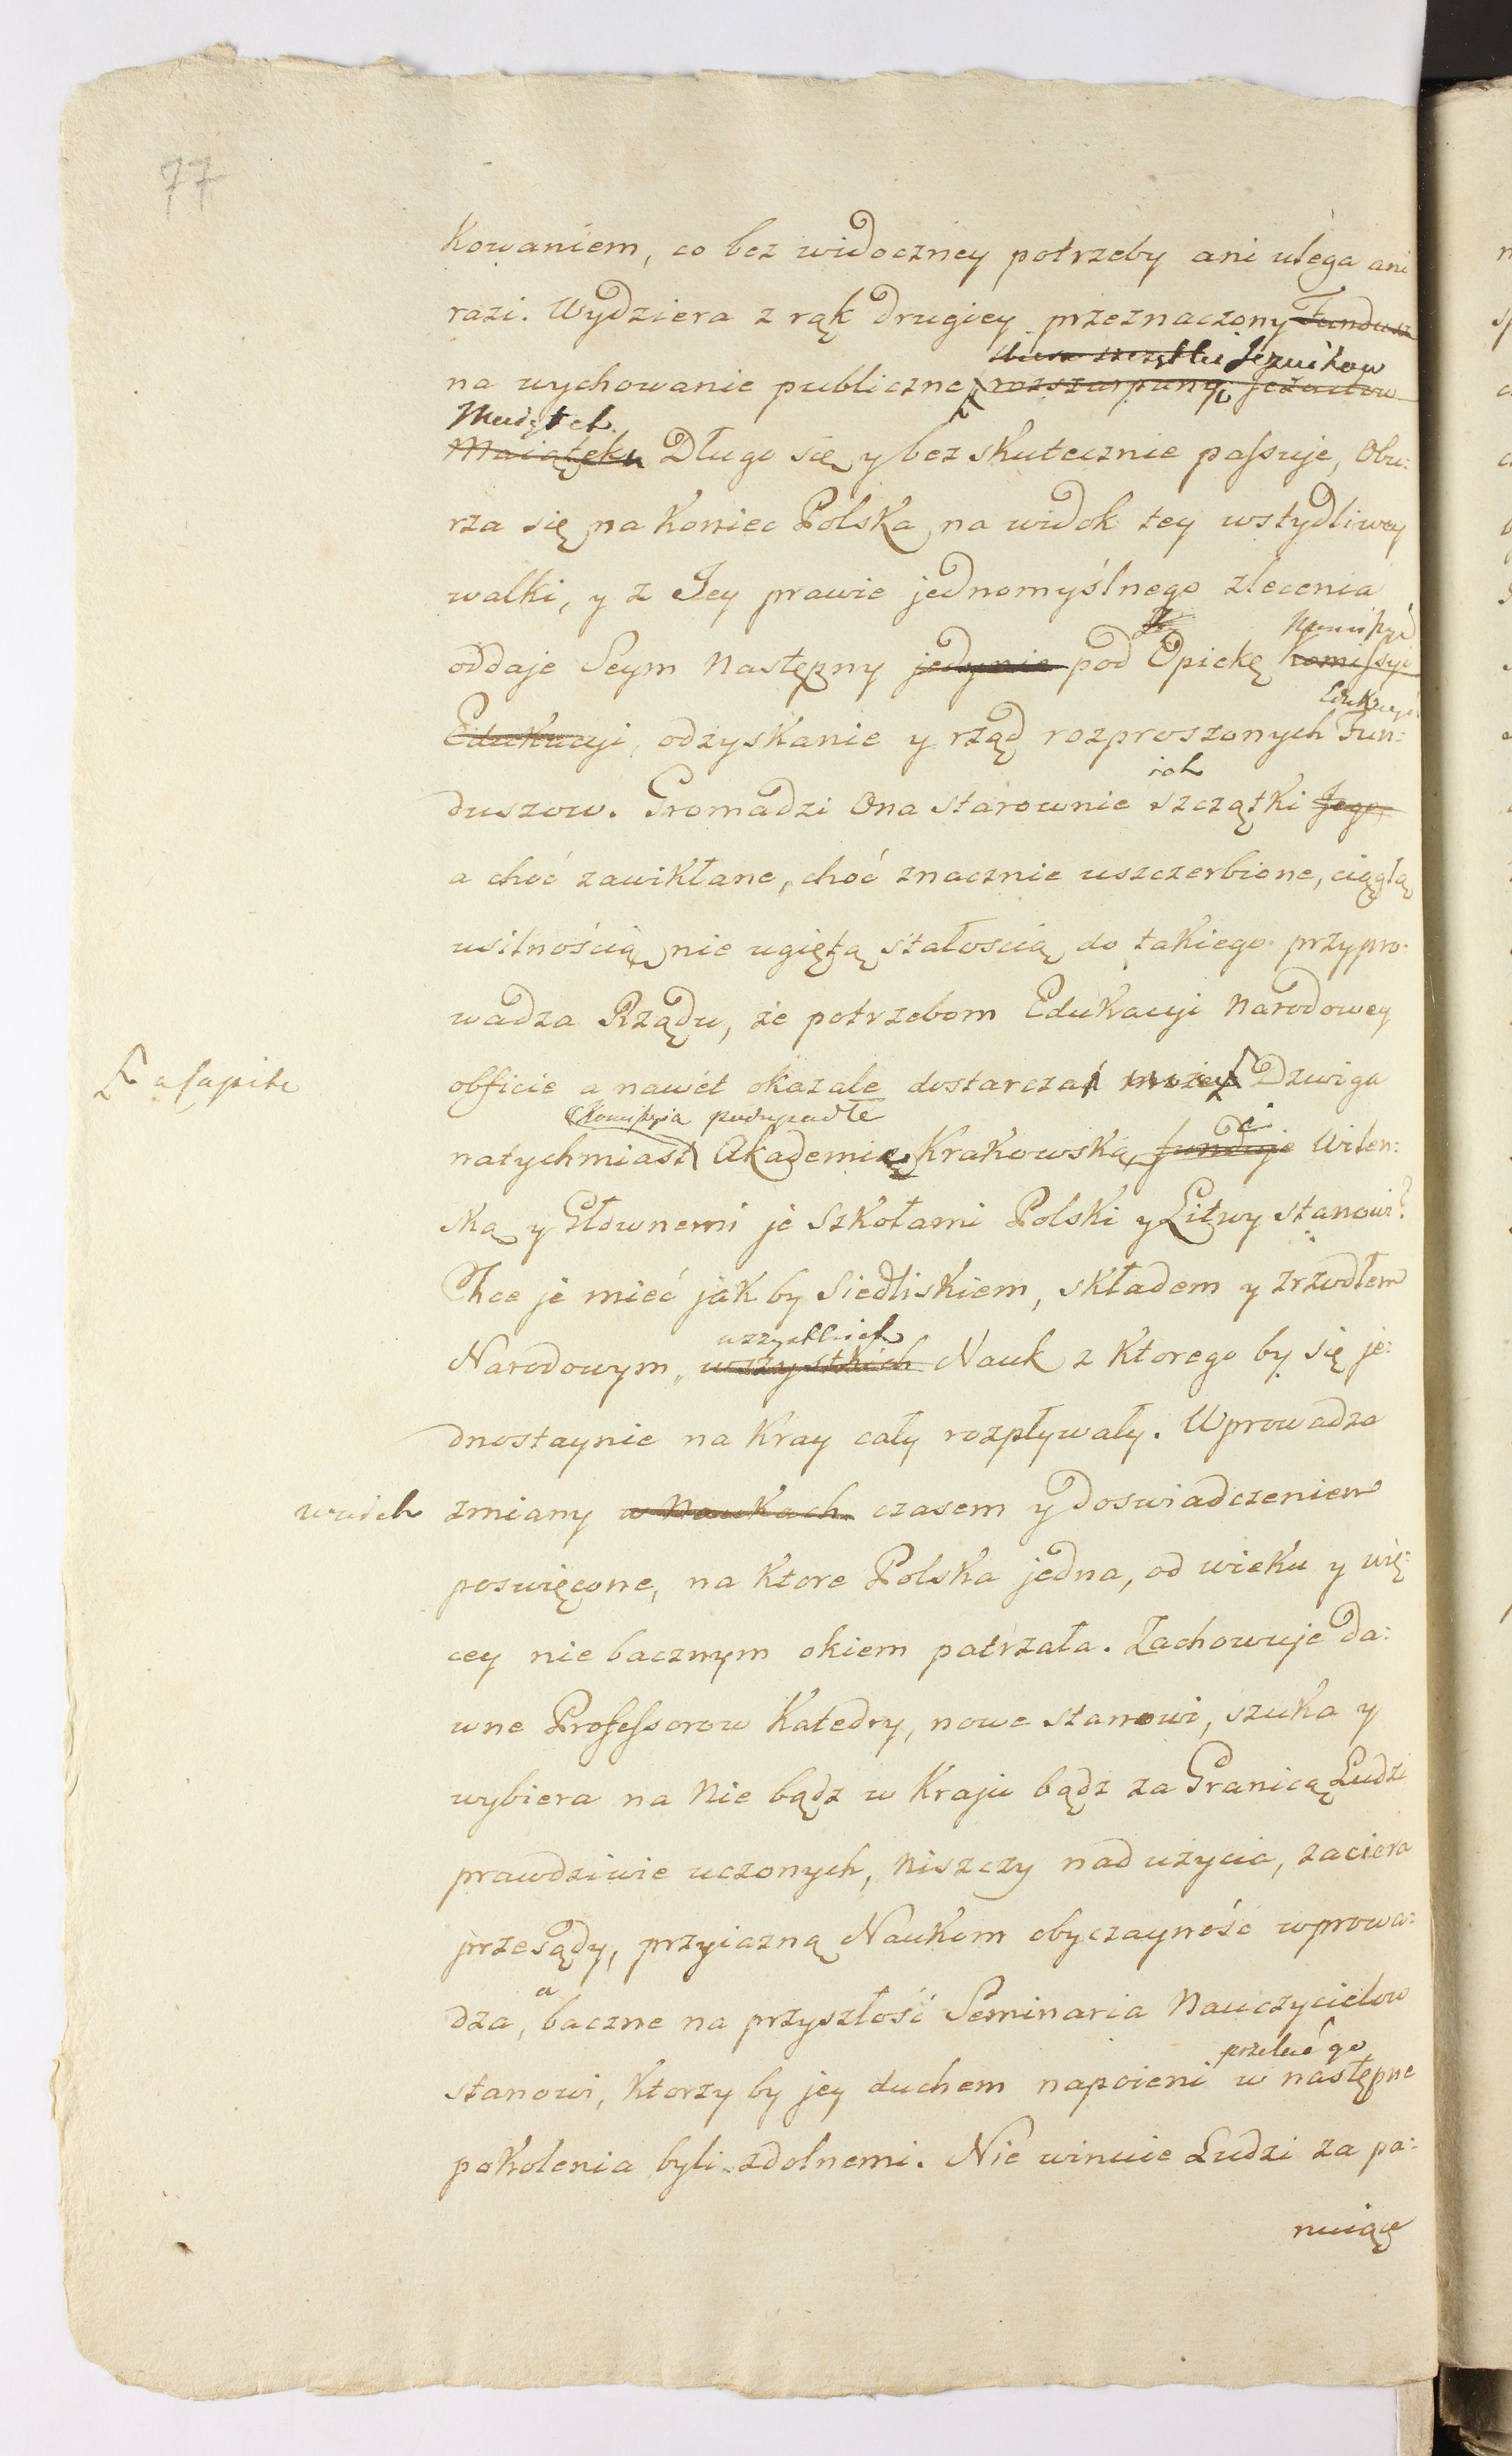 77
kowaniem, co bez widoczney potrzeby ani ulega ani
razi. Wydziera z rąk drugiey przeznaczony Fundusz
szczątki Jezuitow
na wychowanie publiczne, rozszarpany Jezuitow
Maiątek
Maiątęku Długo się y bez skutecznie passuje, Obu:
rza się na koniec Polska, na widok tey wstydliwey
walki, y z Jey prawie jednomyślnego zlecenia
Kommissyi
oddaje Seym następny jedynie pod Opiekę Komissyi
Edukacyi
Edukacyi, odzyskanie y rząd rozproszonych Fun:
ich
duszow. Gromadzi Ona starownie szczątki Jego,
a choć zawikłane, choć znacznie uszczerbione, ciągłą
usilnością, nie ugiętą stałoscią, do takiego przypro:
wadza Rządu, że potrzebom Edukacyi Narodowey
a capite
obficie a nawet okazale dostarczać może Dzwiga
Komissyia podupadłe
natychmiast Akademię Krakowską, funduje Wilen:
ską y Głownemi je Szkołami Polski y Litwy stanowi.
Chce je mieć jak by Siedliskiem, składem y zrzodłem
wszystkich
Narodowym, wszystkich Nauk z ktorego by się je:
dnostaynie na Kray cały rozpływały. Wprowadza
w nich
zmiany w Naukach czasem y doswiadczeniem
poswięcone, na ktore Polska jedna, od wieku y wię:
cey nie bacznym okiem patrzała. Zachowuje da:
wne Professorow Katedry, nowe stanowi, szuka y
wybiera na Nie bądz w Kraju bądz za Granicą Ludzi
prawdziwie uczonych, niszczy nad użycia, zaciera
przesądy, przyiazną Naukom obyczayność wprowa:
a
dza, baczne na przyszłość Seminaria Nauczycielow
przelać go
stanowi, ktorzy by jey duchem napoieni w następne
pokolenia byli zdolnemi. Nie winuie Ludzi za pa:
nuiące